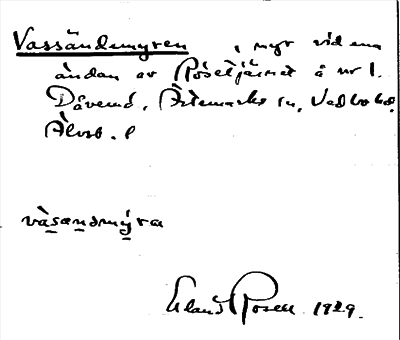 Vassändemyren, myr vid ena
ändan av Rösetjärnet å nr 1.
Dåverud, Ärtemarks sn, Vedbo hd.
Älvsb. l
vàsændmýra
Erland Rosell 1929.